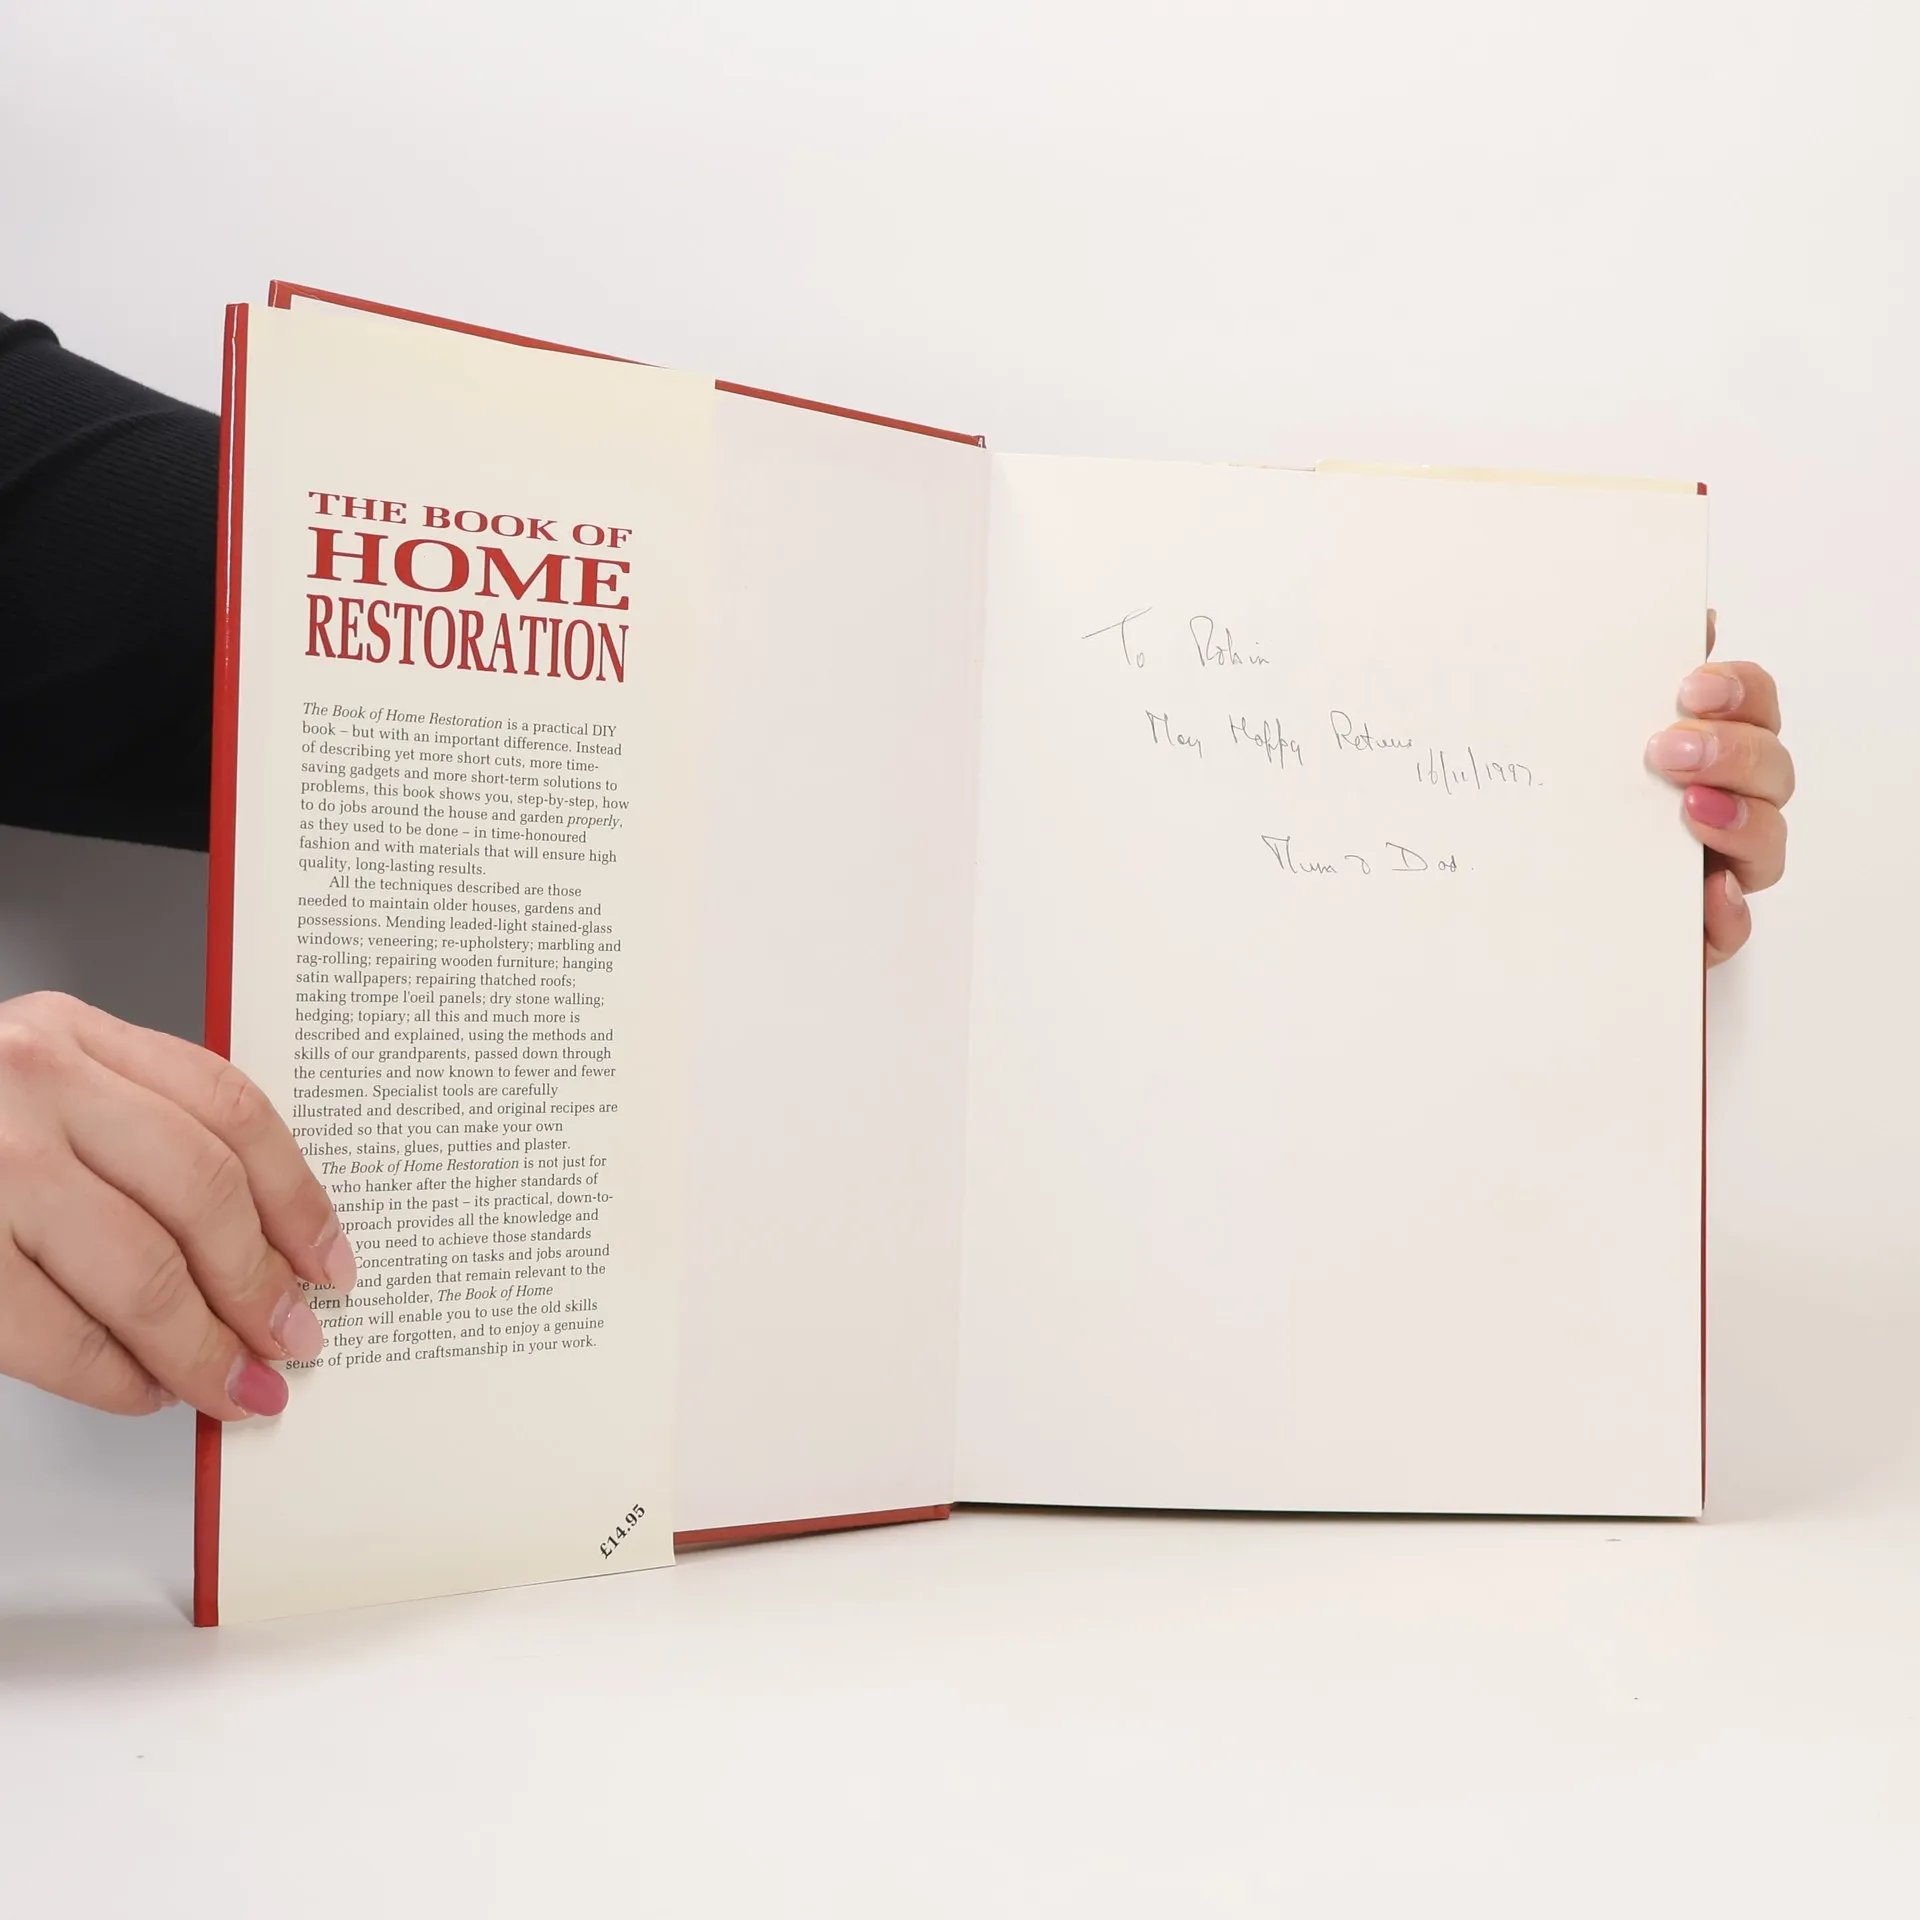 THE BOOK OF
HOME
RESTORATION
The Book of Home Restoration is a practical DIY
book – but with an important difference. Instead
of describing yet more short cuts, more time-
saving gadgets and more short-term solutions to
problems, this book shows you, step-by-step, how
to do jobs around the house and garden properly,
as they used to be done – in time-honoured
fashion and with materials that will ensure high
quality, long-lasting results.
All the techniques described are those
needed to maintain older houses, gardens and
possessions. Mending leaded-light stained-glass
windows; veneering; re-upholstery; marbling and
rag-rolling; repairing wooden furniture; hanging
satin wallpapers; repairing thatched roofs;
making trompe l'oeil panels; dry stone walling;
hedging; topiary; all this and much more is
described and explained, using the methods and
skills of our grandparents, passed down through
the centuries and now known to fewer and fewer
tradesmen. Specialist tools are carefully
illustrated and described, and original recipes are
provided so that you can make your own
olishes, stains, glues, putties and plaster.
The Book of Home Restoration is not just for
who hanker after the higher standards of
manship in the past – its practical, down-to-
pproach provides all the knowledge and
you need to achieve those standards
Concentrating on tasks and jobs around
and garden that remain relevant to the
dern householder, The Book of Home
oration will enable you to use the old skills
they are forgotten, and to enjoy a genuine
sense of pride and craftsmanship in your work.
£14.95
To Robin
Many Happy Returns
16/11/1997.
Mum & Dad.